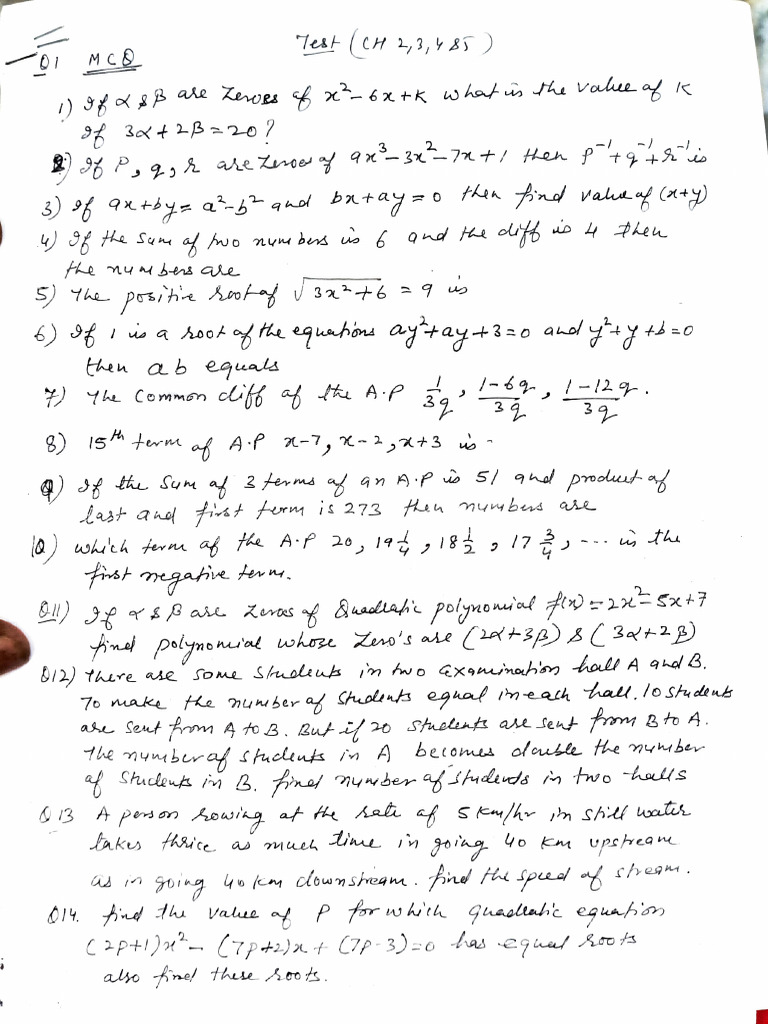 Test (CH 2,3,4 & 5)
Q1 MCQ
1) If α & β are zeroes of x²-6x+K what is the value of K
if 3α+2β=20?
2) If P, q, r are zeroes of ax³-3x²-7x+1 then p⁻¹+q⁻¹+r⁻¹ is
3) If ax+by=a²-b² and bx+ay=0 then find value of (x+y)
4) If the sum of two numbers is 6 and the diff is 4 then
the numbers are
5) The positive root of √3x²+6 = 9 is
6) If 1 is a root of the equations ay²+ay+3=0 and y²+y+b=0
then ab equals
7) The common diff of the A.P 1/3q, 1-6q/3q, 1-12q/3q.
8) 15th term of A.P x-7, x-2, x+3 is -
9) If the sum of 3 terms of an A.P is 51 and product of
last and first term is 273 then numbers are
10) which term of the A.P 20, 19 1/4, 18 1/2, 17 3/4, --- is the
first negative term.
Q11) If α & β are zeros of Quadratic polynomial f(x)=2x²-5x+7
find polynomial whose zero's are (2α+3β) & (3α+2β)
Q12) There are some students in two examination hall A and B.
To make the number of students equal in each hall. 10 students
are sent from A to B. But if 20 students are sent from B to A.
The number of students in A becomes double the number
of students in B. find number of students in two halls
Q13 A person rowing at the rate of 5 km/hr in still water
takes thrice as much time in going 40 km upstream
as in going 40 km downstream. find the speed of stream.
Q14. find the value of P for which quadratic equation
(2p+1)x²-(7p+2)x+(7p-3)=0 has equal roots
also find these roots.